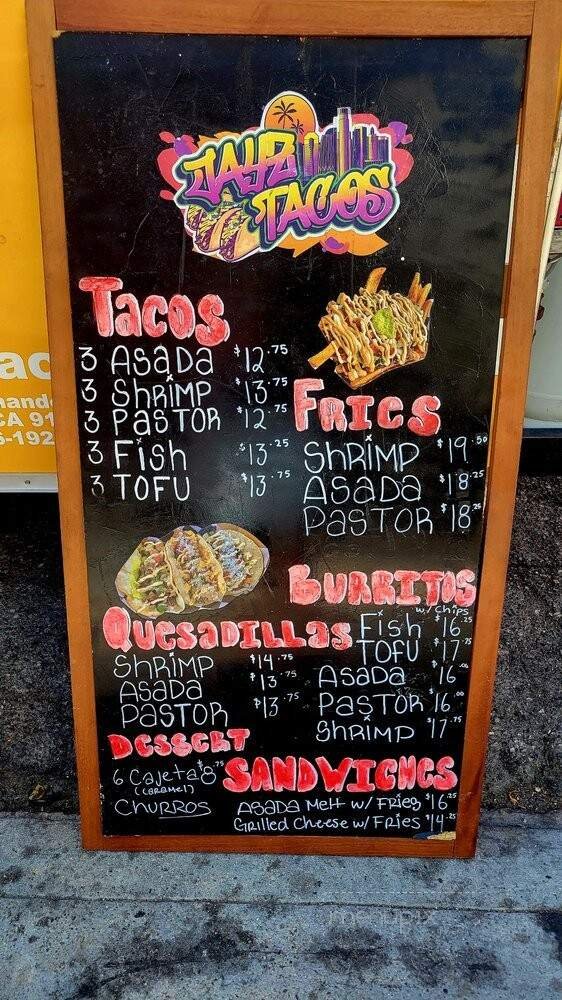 JAYZ
TACOS
Tacos
3 Asada $12.75
3 Shrimp $13.75
3 Pastor $12.75
3 Fish $13.25
3 Tofu $13.75
Fries
Shrimp $19.50
Asada $18.25
Pastor $18.25
Burritos
w/ Chips
Fish $16.25
Tofu $17.75
Asada $16.00
Pastor $16.00
Shrimp $17.75
Quesadillas
Shrimp $14.75
Asada $13.75
Pastor $13.75
Dessert
6 Cajeta $8.75
(Caramel)
Churros
SANDWICHES
Asada Melt w/ Fries $16.25
Grilled Cheese w/ Fries $14.25
ac
nand
CA 91
5-192
menupix